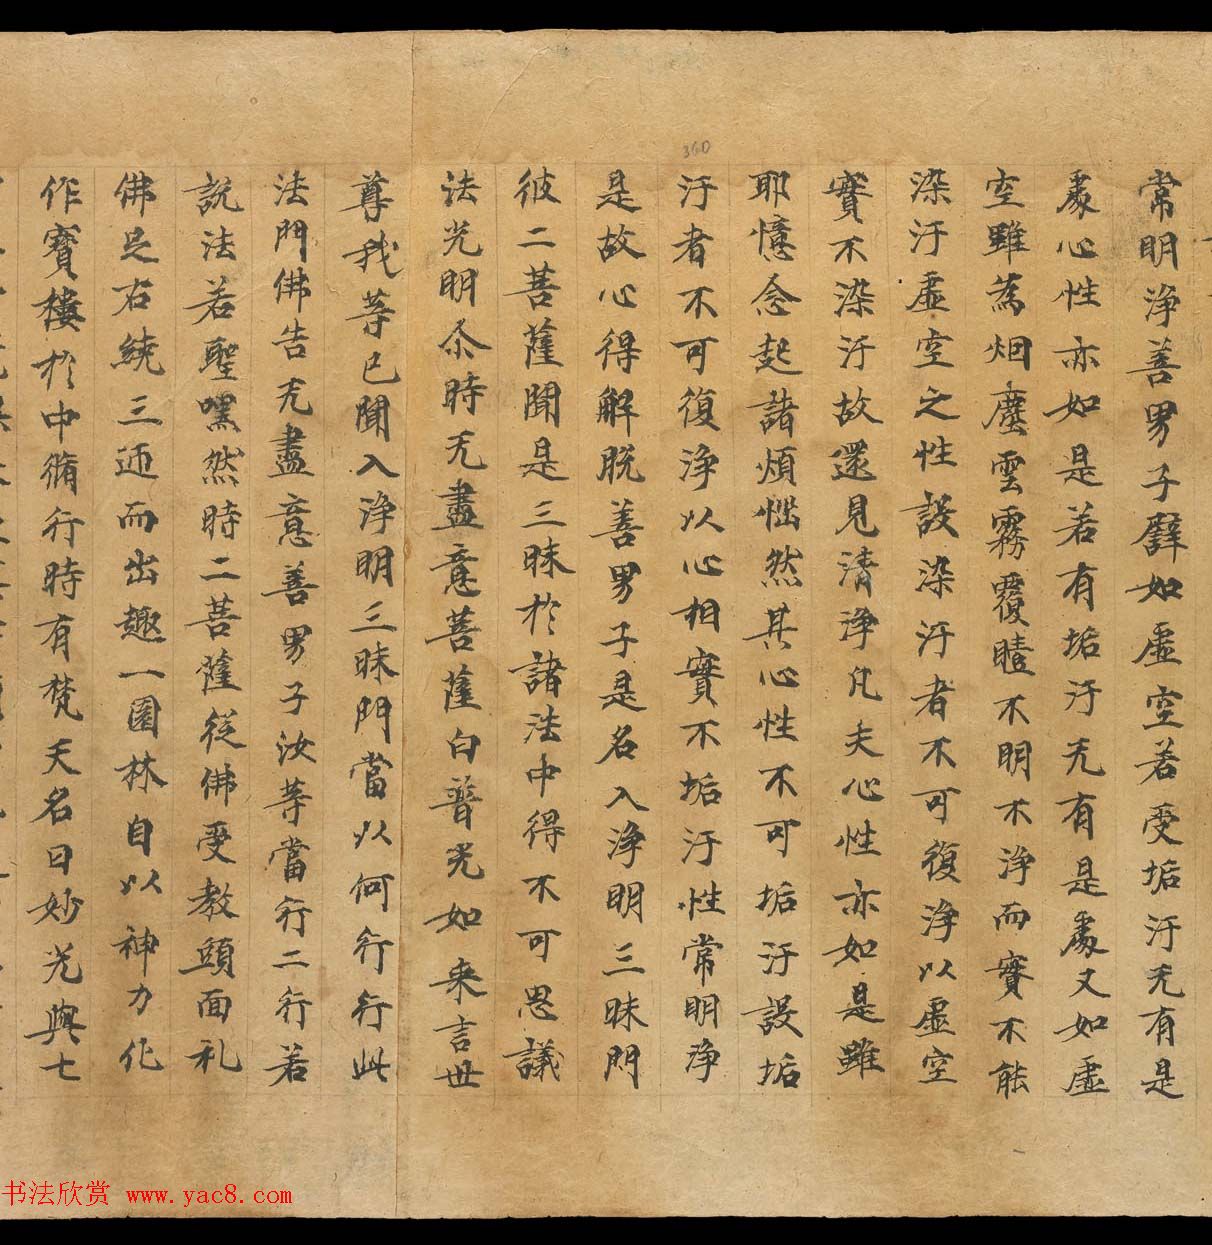 常明淨善男子譬如虛空若受垢汙无有是
處心性亦如是若有垢汙无有是處又如虛
空雖為烟塵雲霧覆曀不明不淨而實不能
染汙虛空之性設染汙者不可復淨以虛空
實不染汙故還見清淨凡夫心性亦如是雖
耶憶念起諸煩惱然其心性不可垢汙設垢
汙者不可復淨以心相實不垢汙性常明淨
是故心得解脫善男子是名入淨明三昧門
彼二菩薩聞是三昧於諸法中得不可思議
法光明尒時无盡意菩薩白普光如来言世
尊我等已聞入淨明三昧門當以何行行此
法門佛告无盡意善男子汝等當行二行若
說法若聖嘿然時二菩薩從佛受教頭面礼
佛足右繞三迊而出趣一園林自以神力化
作寶樓於中脩行時有梵天名曰妙光與七
360
书法欣赏 www.yac8.com